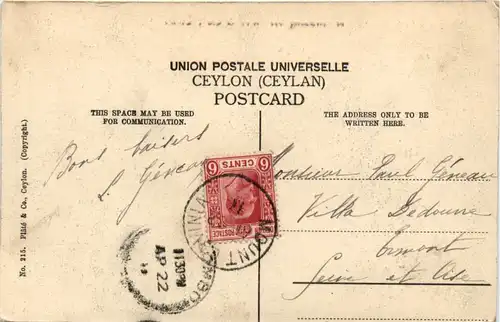 UNION POSTALE UNIVERSELLE
CEYLON (CEYLAN)
POSTCARD
THIS SPACE MAY BE USED
FOR COMMUNICATION.
THE ADDRESS ONLY TO BE
WRITTEN HERE.
Bons baisers
L. Géneau
6
CENTS
POSTAGE
MOUNT LAVINIA
1130
AP 22
11
Monsieur Paul Géneau
Villa
Ermont
Seine et Oise
No. 215. Plâté & Co., Ceylon. (Copyright.)